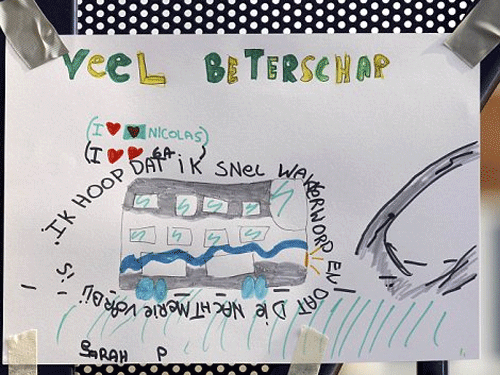 VeeL BETERSCHAP
(I ♥ ♥ NICOLAS)
(I ♥ ♥ EA)
IK HOOP DAT iK SNEL WAKKERWORD EN DAT Die NACHTMERIE VORBIJ iS!
SARAH P